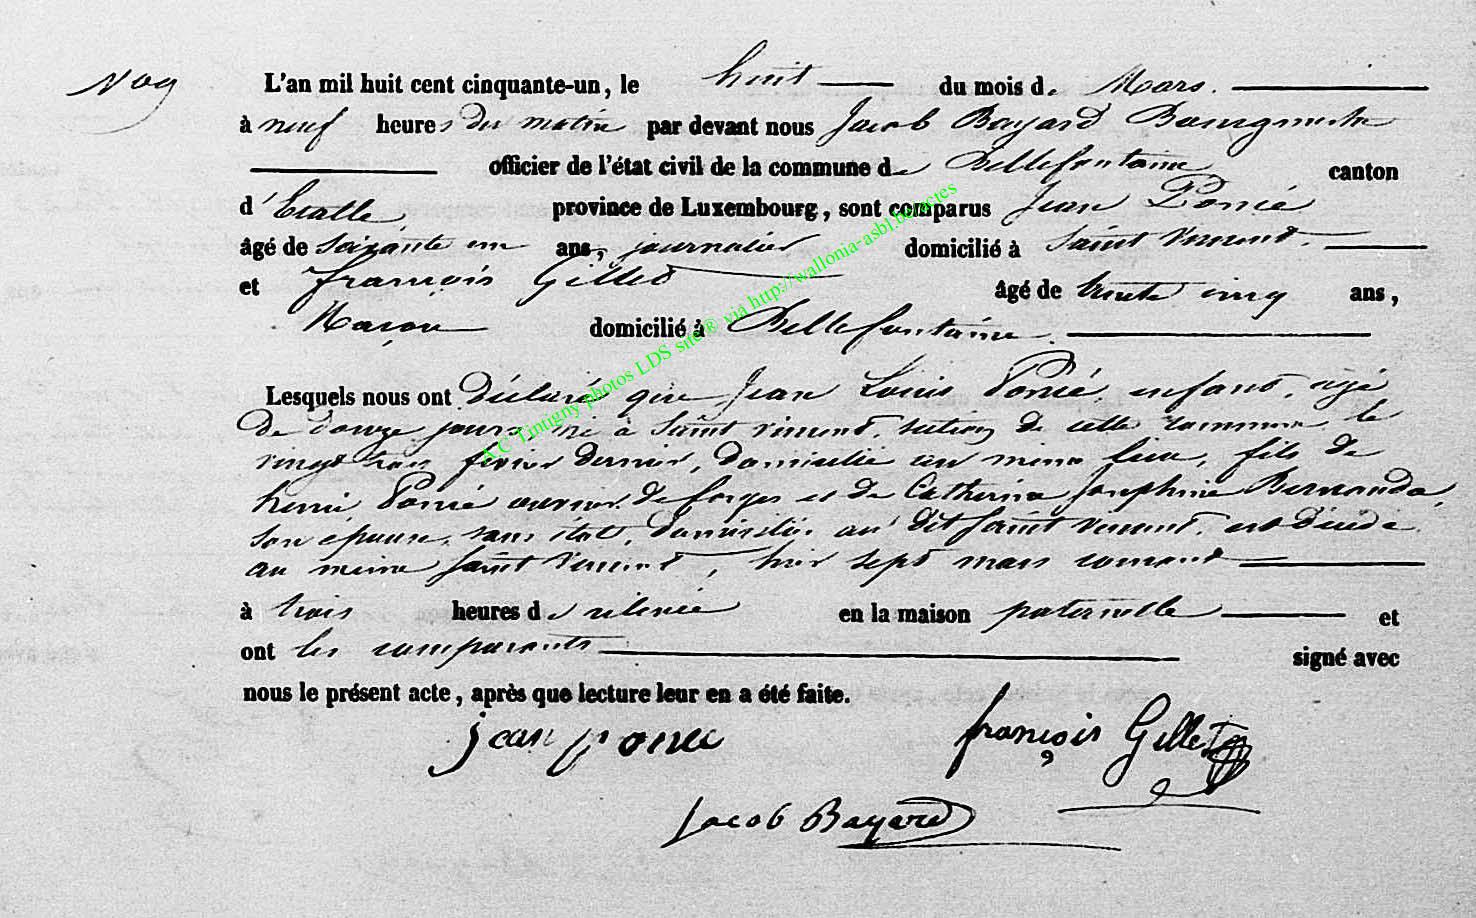 N° 9
L'an mil huit cent cinquante-un, le huit du mois de Mars.
à neuf heures du matin par devant nous Jacob Bayard Bourgmestre
officier de l'état civil de la commune de Bellefontaine canton
d'Etalle, province de Luxembourg, sont comparus Jean Poncé
âgé de soixante un ans, journalier domicilié à Saint Vincent.
et françois Gillet âgé de trente cinq ans,
Maçon domicilié à Bellefontaine.
Lesquels nous ont Déclaré que Jean Louis Poncé, enfant, agé
de douze jours, né à Saint vincent, section de cette commune le
vingt trois fevrier dernier, domicilié au meme lieu, fils de
henri Poncé ouvrier de forges et de Catherine Josephine
son épouse, sans état, domiciliés au dit Saint Vincent, est décédé
au meme Saint Vincent, hier sept mars courant
à trois heures de relevée en la maison paternelle et
ont les comparants signé avec
nous le présent acte, après que lecture leur en a été faite.
jean ponce
françois Gillet
Jacob Bayard
A.C Tintigny photos LDS site ® via http://wallonia-asbl.be/actes